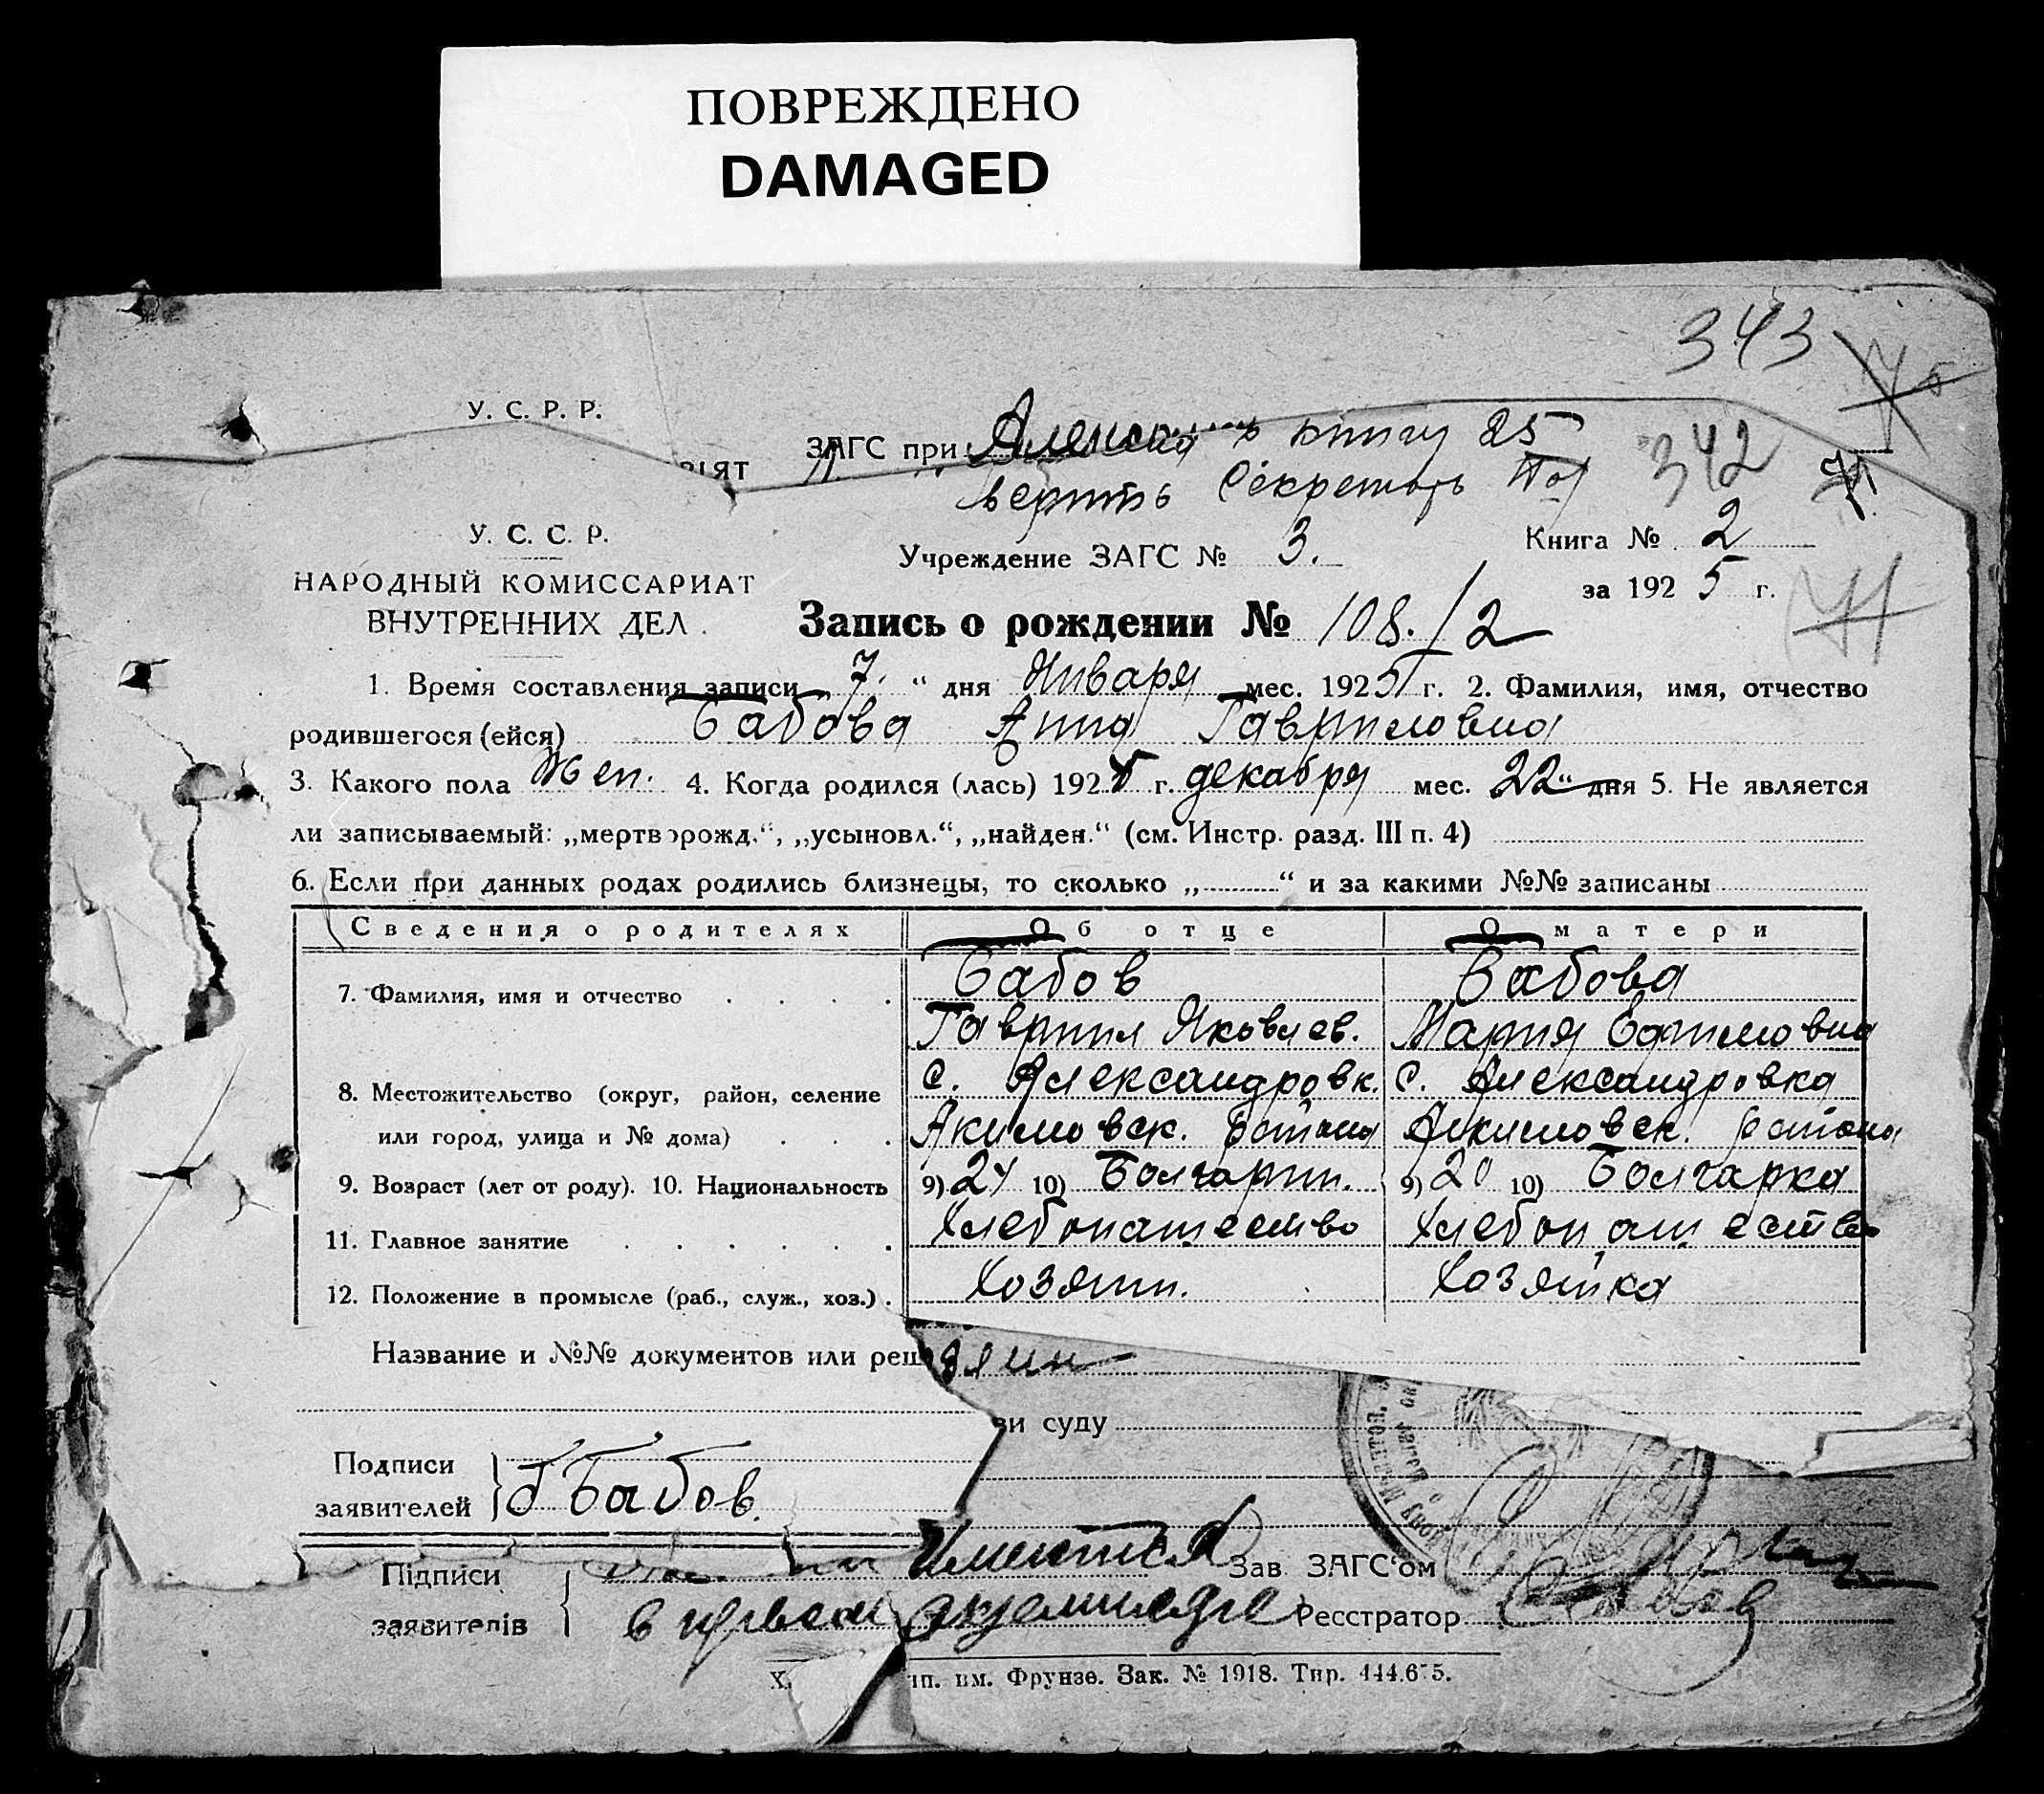 ПОВРЕЖДЕНО
DAMAGED
343
У. С. Р. Р.
ЗАГС при книгу 25
342
ІЯТ
Секретарь
У. С. С. Р.
Учреждение ЗАГС № 3.
Книга № 2
НАРОДНЫЙ КОМИССАРИАТ
ВНУТРЕННИХ ДЕЛ.
за 1925 г.
71
Запись о рождении № 108./2
1. Время составления записи „7.“ дня Января мес. 1925 г. 2. Фамилия, имя, отчество
родившегося (ейся) Бабова Анна Гавриловна
3. Какого пола жен. 4. Когда родился (лась) 192 г. декабря мес. 22 “ дня 5. Не является
ли записываемый: „мертворожд.“, „усыновл.“, „найден.“ (см. Инстр. разд. III п. 4)
6. Если при данных родах родились близнецы, то сколько „ “ и за какими №№ записаны
Сведения о родителях Об отце О матери
7. Фамилия, имя и отчество Бабов Бабова
Гавриил Яковлев. Мария Ефимовна
8. Местожительство (округ, район, селение с. Александровк. с. Александровка
или город, улица и № дома) Акимовск. района Акимовск. района
9. Возраст (лет от роду). 10. Национальность 9) 24 10) Болгарин. 9) 20 10) Болгарка
11. Главное занятие Хлебопашество Хлебопашество
12. Положение в промысле (раб., служ., хоз.) . Хозяин. Хозяйка
Название и №№ документов или реш
зи суду
Подписи
заявителей Г Бабов.
Підписи
заявителів
Имеится
в первом экземпляре
Зав ЗАГС‘ом
Реєстратор
ип. им. Фрунзе. Зак. № 1918. Тир. 444.675.